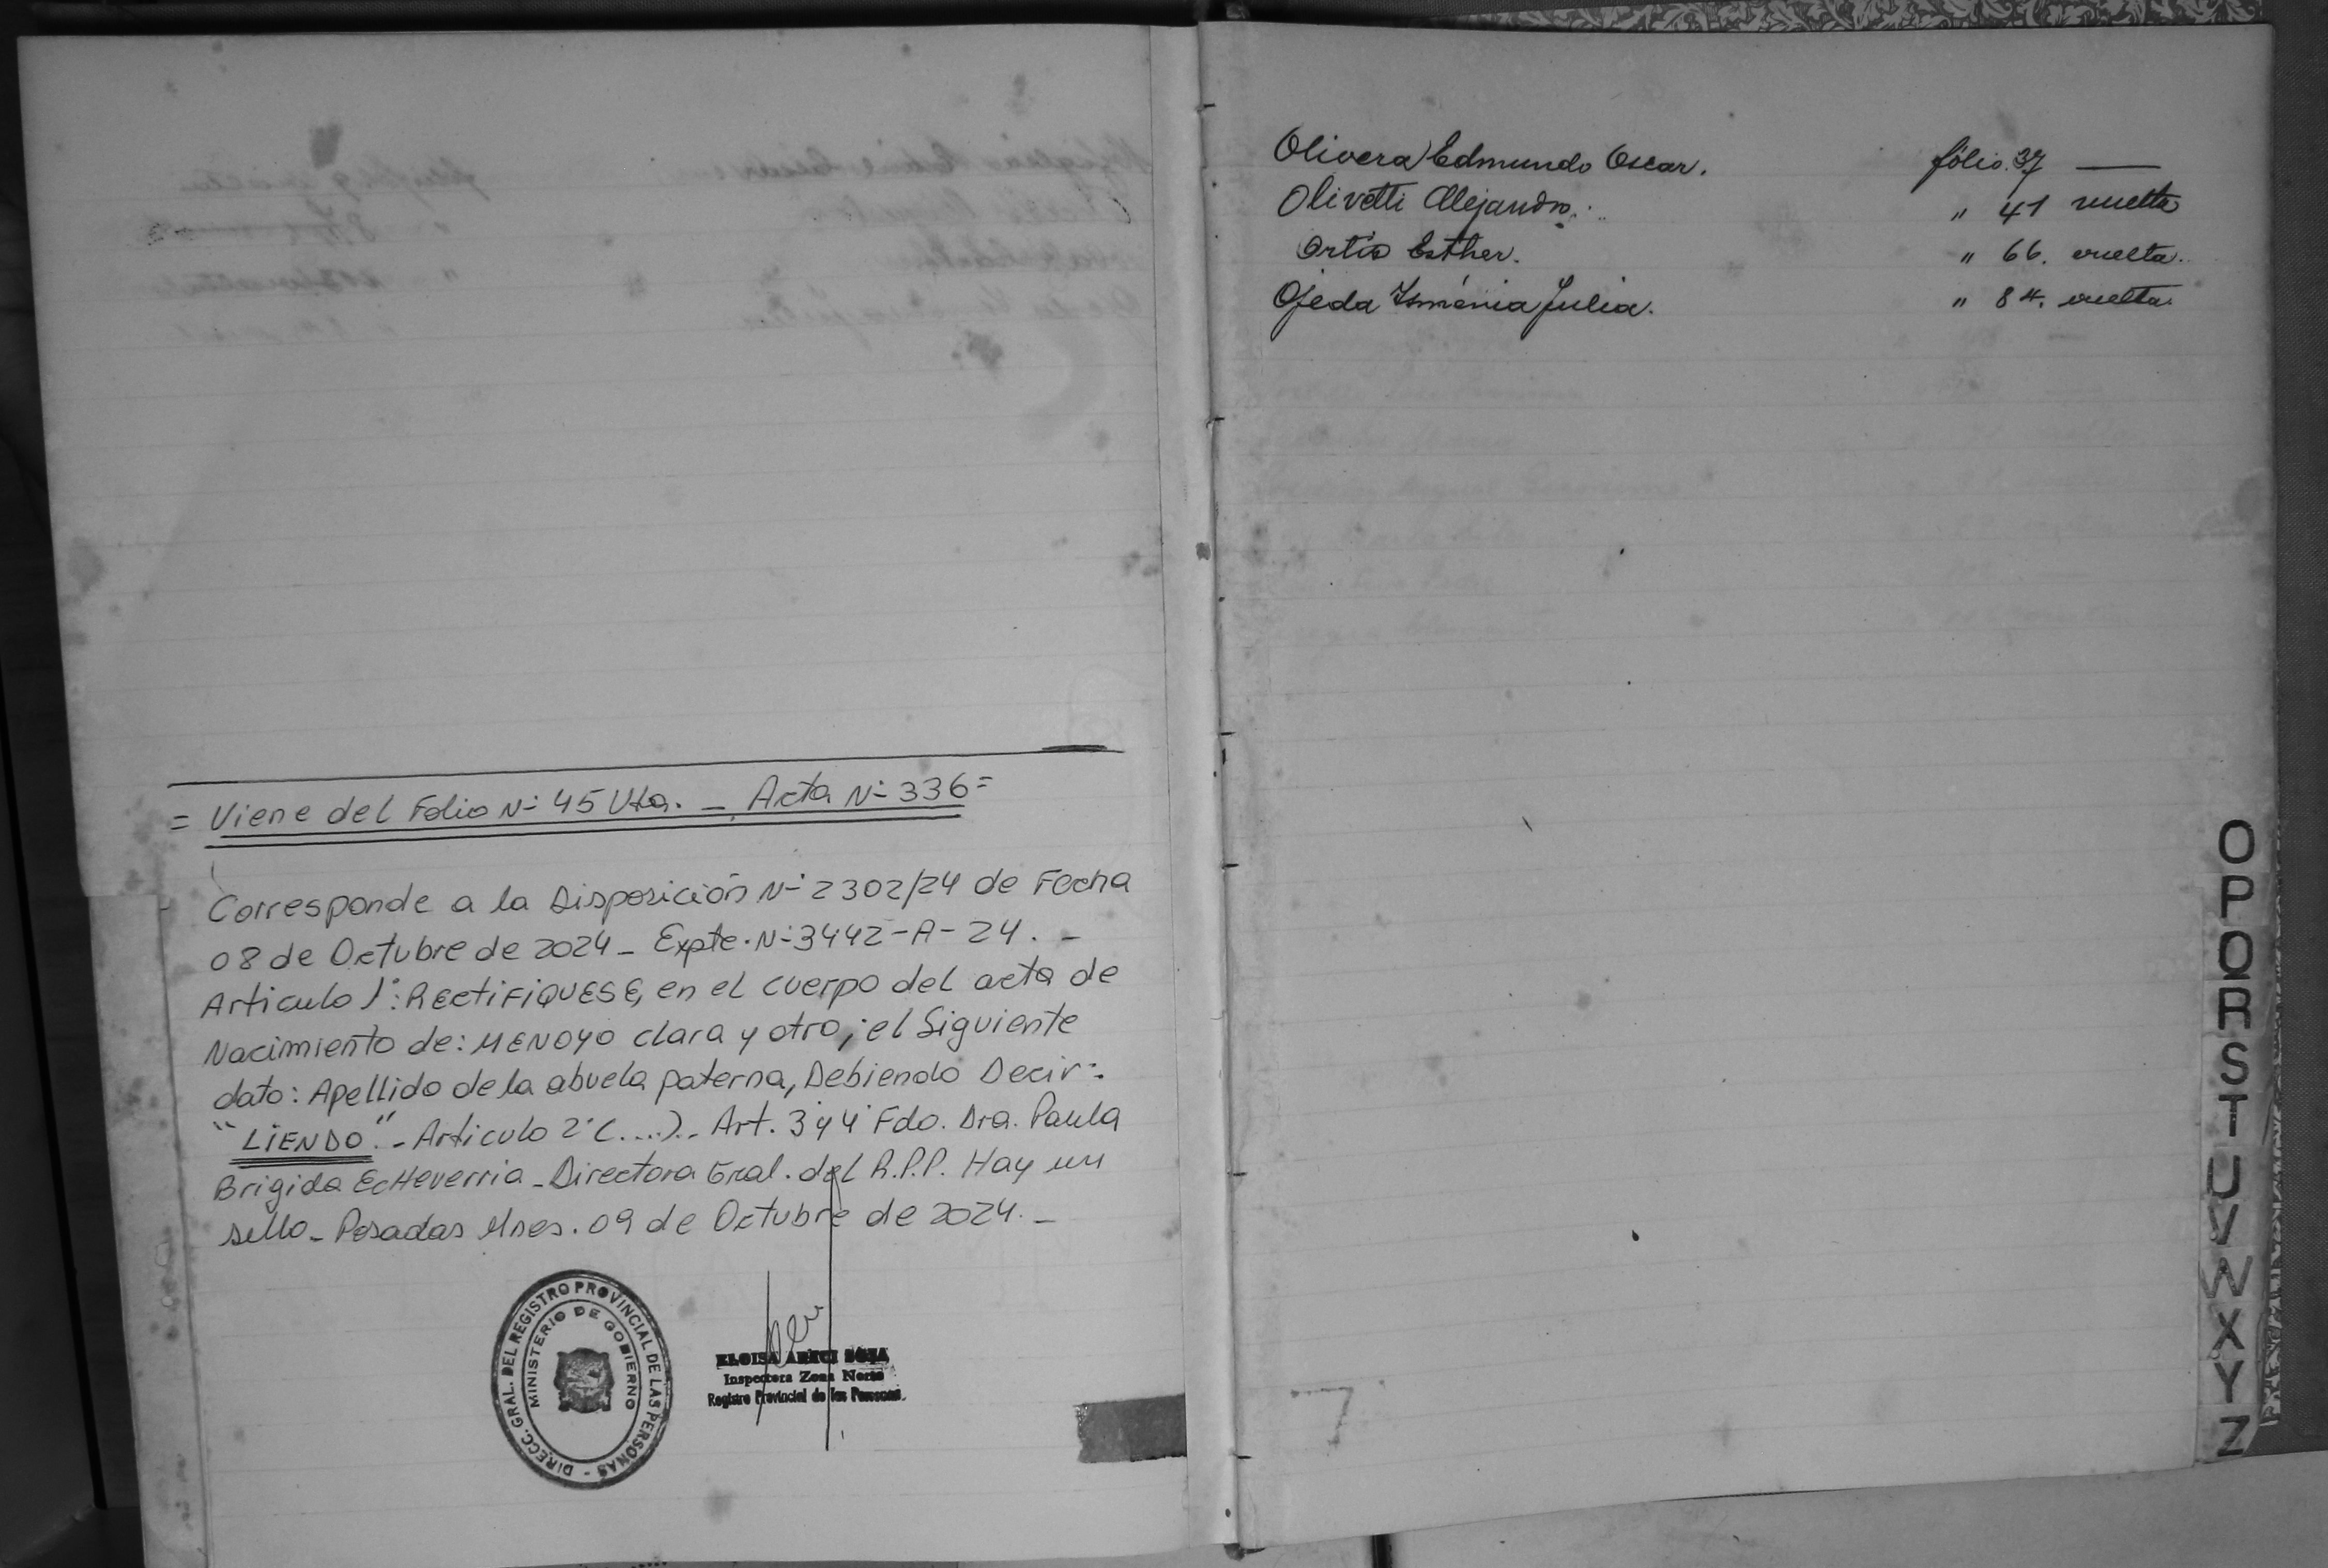 = Viene del Folio N- 45 Vta. - Acta N- 336 =
Corresponde a la Disposición N- 2302/24 de Fecha
08 de Octubre de 2024 - Expte. N- 3442-A-24. -
Articulo 1°: RECTIFIQUESE, en el cuerpo del acta de
Nacimiento de: MENOYO clara y otro, el Siguiente
dato: Apellido de la abuela paterna, Debiendo Decir:
"LIENDO". - Articulo 2° (....).- Art. 3 y 4 Fdo. Dra. Paula
Brigida Echeverria - Directora Gral. del R.P.P. Hay un
sello - Posadas Mnes. 09 de Octubre de 2024. -
DIRECC. GRAL. DEL REGISTRO PROVINCIAL DE LAS PERSONAS -
MINISTERIO DE GOBIERNO
ELOISA
Inspectora Zona
Registro Provincial de las Personas.
Olivera Edmundo Oscar. fólio. 37 —
Olivetti Alejandro. " 41 vuelta
Ortis Esther. " 66. vuelta.
Ojeda Isménia Julia. " 84. vuelta.
O
P
Q
R
S
T
U
V
W
X
Y
Z
7